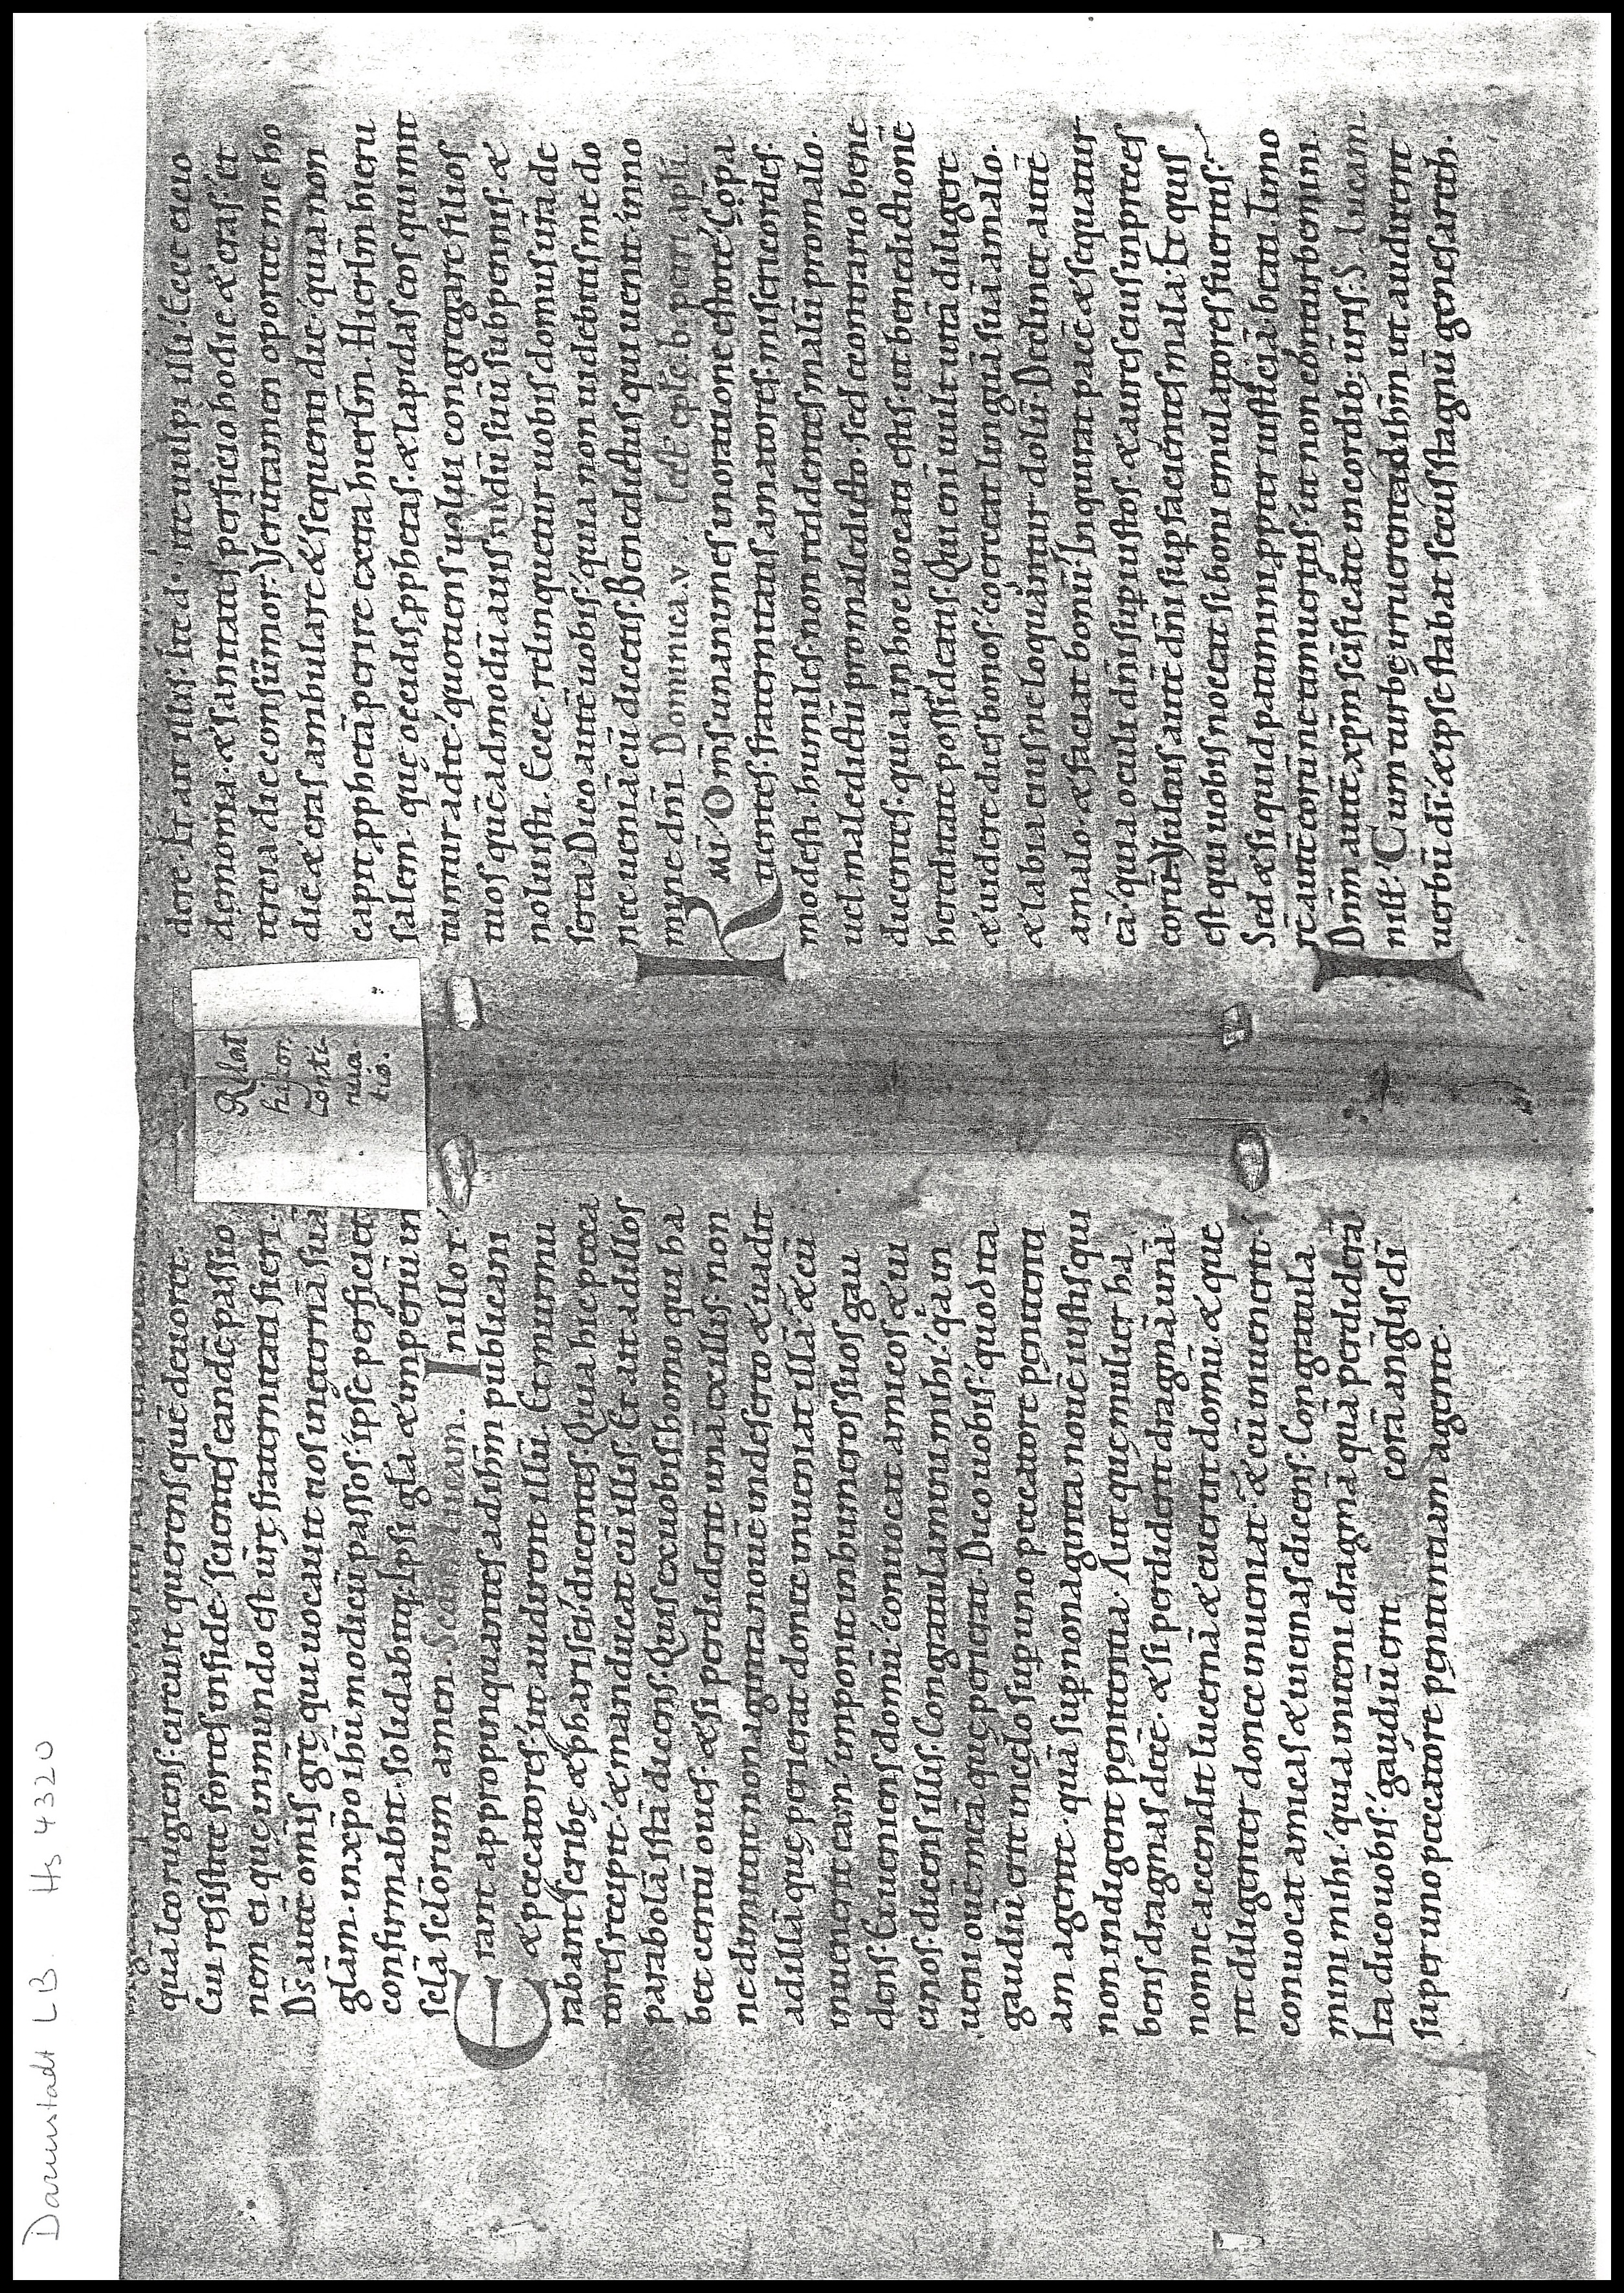 Darmstadt LB. Hs 4320
quā leo rugiens. circuit querens quē deuoret.
Cui resistite fortes in fide. scientes eandē passio
nem ei quę in mundo est ur̄ę fraternitati fieri.
D̄s autē omnis gr̄ę. qui uocauit nos in ęternā suā
gl̄am. in xp̄o ih̄u. modicū passos. ipse perficiet
confirmabit. solidabitq;. Ipsi gl̄a & imperiū in
sc̄la sc̄lorum amen. Scd̄m lucam. In illo t̄.
Erant appropinquantes ad ih̄m publicani
& peccatores. ut audirent illū. Et murmu
rabant scribę & pharisei. dicentes. Quia hic pecca
tores recipit. & manducat cū illis. Et ait ad illos
parabolā istā dicens. Quis ex uobis homo qui ha
bet centū oues. & si perdiderit unā ex illis. non
ne dimittit nonaginta nouē in deserto & uadit
ad illā quę perierat donec inueniat illā. & cū
inuenerit eam. imponit in humeros suos gau
dens. Et ueniens domū. conuocat amicos & ui
cinos. dicens illis. Congratulamini mihi. q̄a in
ueni ouē meā quę perierat. Dico uobis. quod ita
gaudiū erit in cęlo sup uno peccatore penitenti
am agente. quā sup nonaginta nouē iustis qui
non indigent penitentia. Aut quę mulier ha
bens dragmas decē. & si perdiderit dragmā unā.
nonne accendit lucernā & euerrit domū. & que
rit diligenter donec inueniat. & cū inuenerit.
conuocat amicas & uicinas dicens. Congratula
mini mihi. quia inueni dragmā quā perdiderā
Ita dico uobis. gaudiū erit corā angl̄is dī
super uno peccatore penitentiam agente.
Rl̄lat
histor.
Conti
nua
tio.
dere. Et ait illis. Ite d. ite uulpi illi. Ecce eicio
dęmonia. & sanitates perficio hodie & cras. & t
tercia die consūmor. Verūtamen oportet me ho
die & cras ambulare & sequenti die. quia non
capit pphetā perire extra hierl̄m. Hierl̄m hieru
salem. quę occidis pphetas. & lapidas eos qui mit
tuntur ad te. quotiens uolui congregare filios
tuos quēadmodū auis nidū suū sub pennis. &
noluisti. Ecce. relinquetur uobis domus ur̄a de
serta. Dico autē uobis. quia non uidebitis me do
nec ueniat cū dicetis. Benedictus qui uenit in no
mine dn̄i. Dominica. v. lect̄ epl̄e b. petri apl̄i.
Kmī. Om̄s unanimes in oratione estote. Cōpa
tientes. fraternitatis amatores. misericordes.
modesti. humiles. non reddentes malū pro malo.
uel maledictū pro maledicto. sed econtrario bene
dicentes. quia in hoc uocati estis. ut benedictionē
hereditate possideatis. Qui eni uult uitā diligere
& uidere dies bonos. coerceat linguā suā a malo.
& labia eius ne loquantur dolū. Declinet autē
a malo. & faciat bonū. Inquirat pacē & sequatur
eā. quia oculi dn̄i sup iustos. & aures eius in p̄ces
eorū. Vultus autē dn̄i sup facientes mala. Et quis
est qui uobis noceat si boni emulatores fueritis.
Sed & si quid patimini ppter iusticiā. beati. Timo
rē autē eorū ne timueritis. ut non cōturbemini.
Dn̄m autē xp̄m sc̄ificate in cordib; ur̄is. S. lucam.
In illt̄. Cum turbę irruerent ad ih̄m ut audirent
uerbū dī. & ipse stabat secus stagnū genesareth.